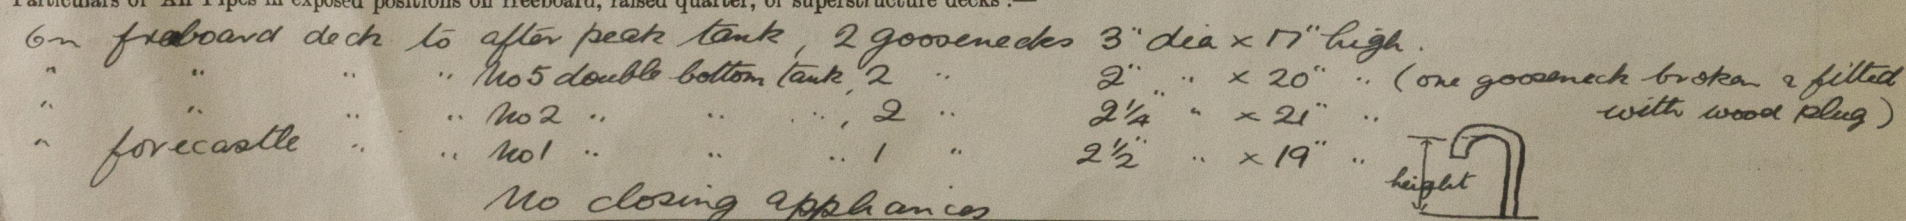 Particulars of Air Pipes in exposed positions on freeboard, raised quarter, or superstructure decks :—
On freeboard deck to after peak tank, 2 goosenecks 3" dia x 17" high.
" " " " No 5 double bottom tank, 2 " 2" " x 20" " (one gooseneck broken & fitted
with wood plug)
" " " " No 2 " " ", 2 " 2 1/4" " x 21" "
" forecastle " " No 1 " " " 1 " 2 1/2" " x 19" "
height
No closing appliances